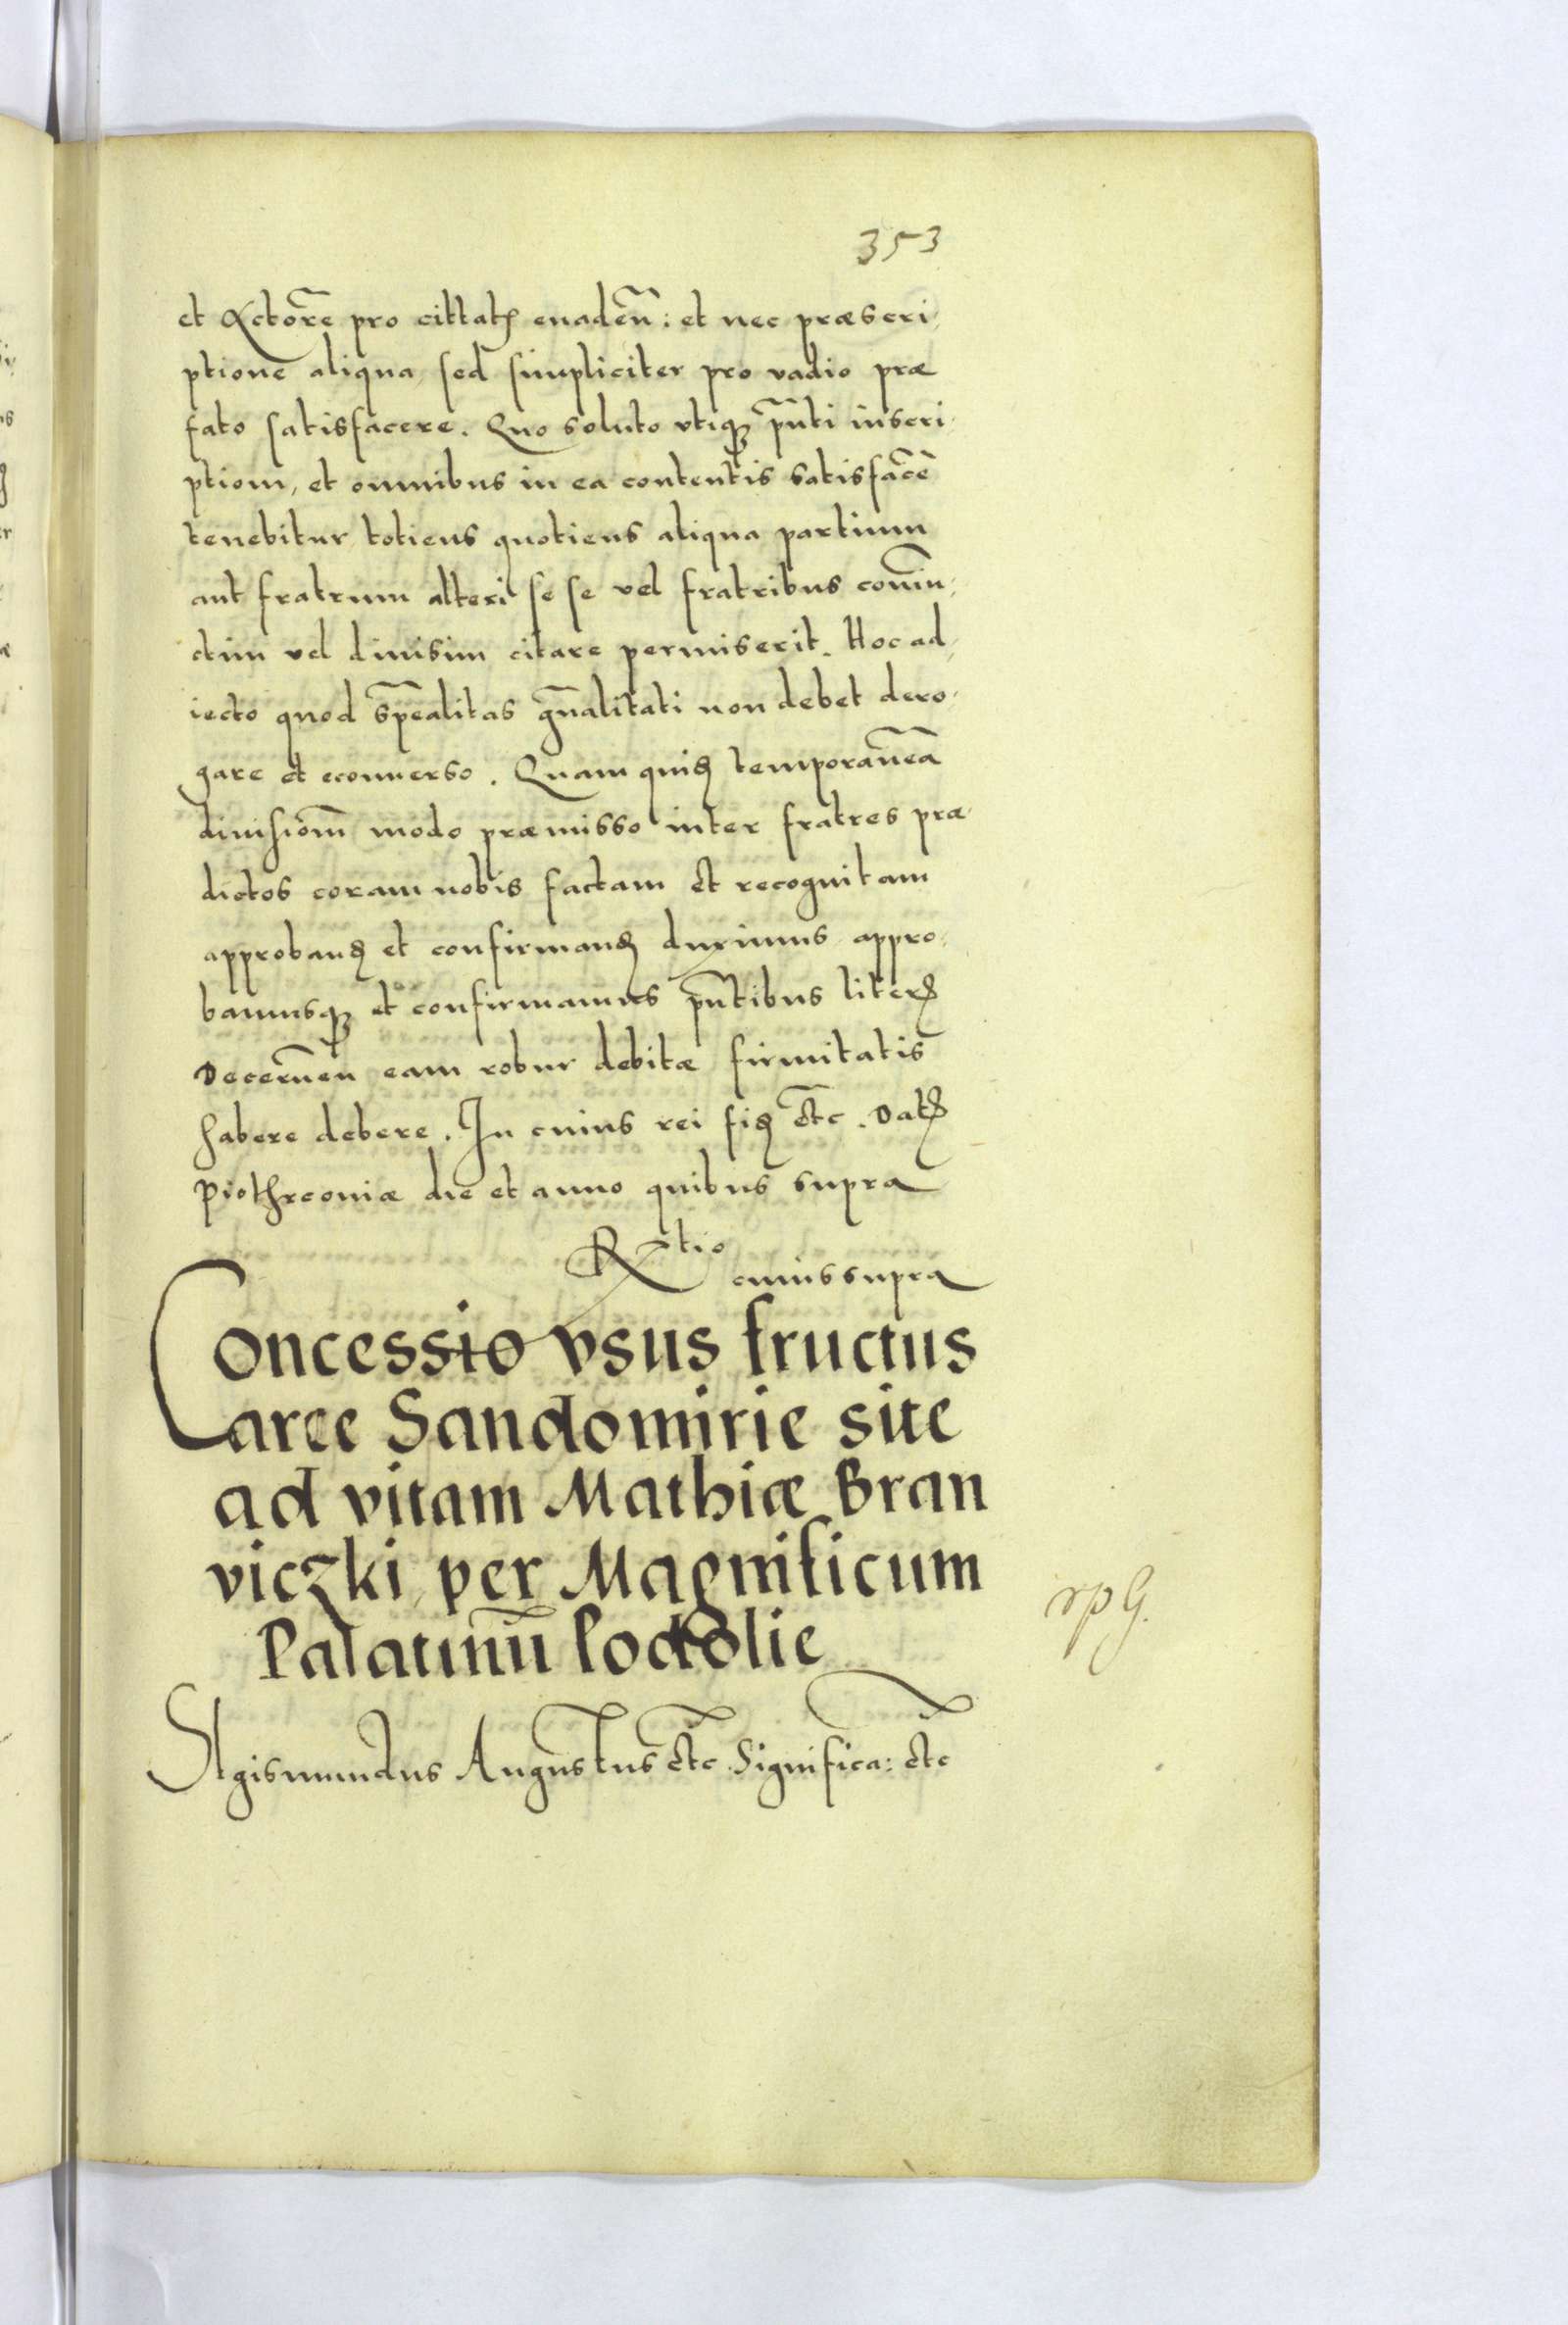 353
et Actorē pro cittatꝭ euadeñ: et nec præscri-
ptione aliqua, sed simpliciter pro vadio præ
fato satisfacere. Quo soluto vtiqꝫ pñti inscri-
ptioni, et omnibus in ea contentis satisfacē
tenebitur, totiens quotiens aliqua partium
aut fratrum alteri se se vel fratribus coniũ-
ctim vel diuisim citare permiserit. Hoc ad-
iecto quod spēalitas gñalitati non debet dero-
gare et econuerso. Quam quidꝭ temporaneā
diuisionē modo præmisso inter fratres præ-
dictos coram nobis factam et recognitam
approbandꝭ et confirmandꝭ duximus, appro-
bamusqꝫ et confirmamus pñtibus literꝭ
Decernen̄ eam robur debitæ firmitatis
habere debere. In cuius rei fidꝭ etc̄. Datꝭ
Piothrcouiæ die et anno quibus supra
Rtio
cuius supra
Concessio vsus fructus
aree Sandomirie site
ad vitam Mathiæ Bran
viczki, per Magnificum
Palatinū Podolie
rp G.
SIgismundus Augustus etc̄ Significa: etc